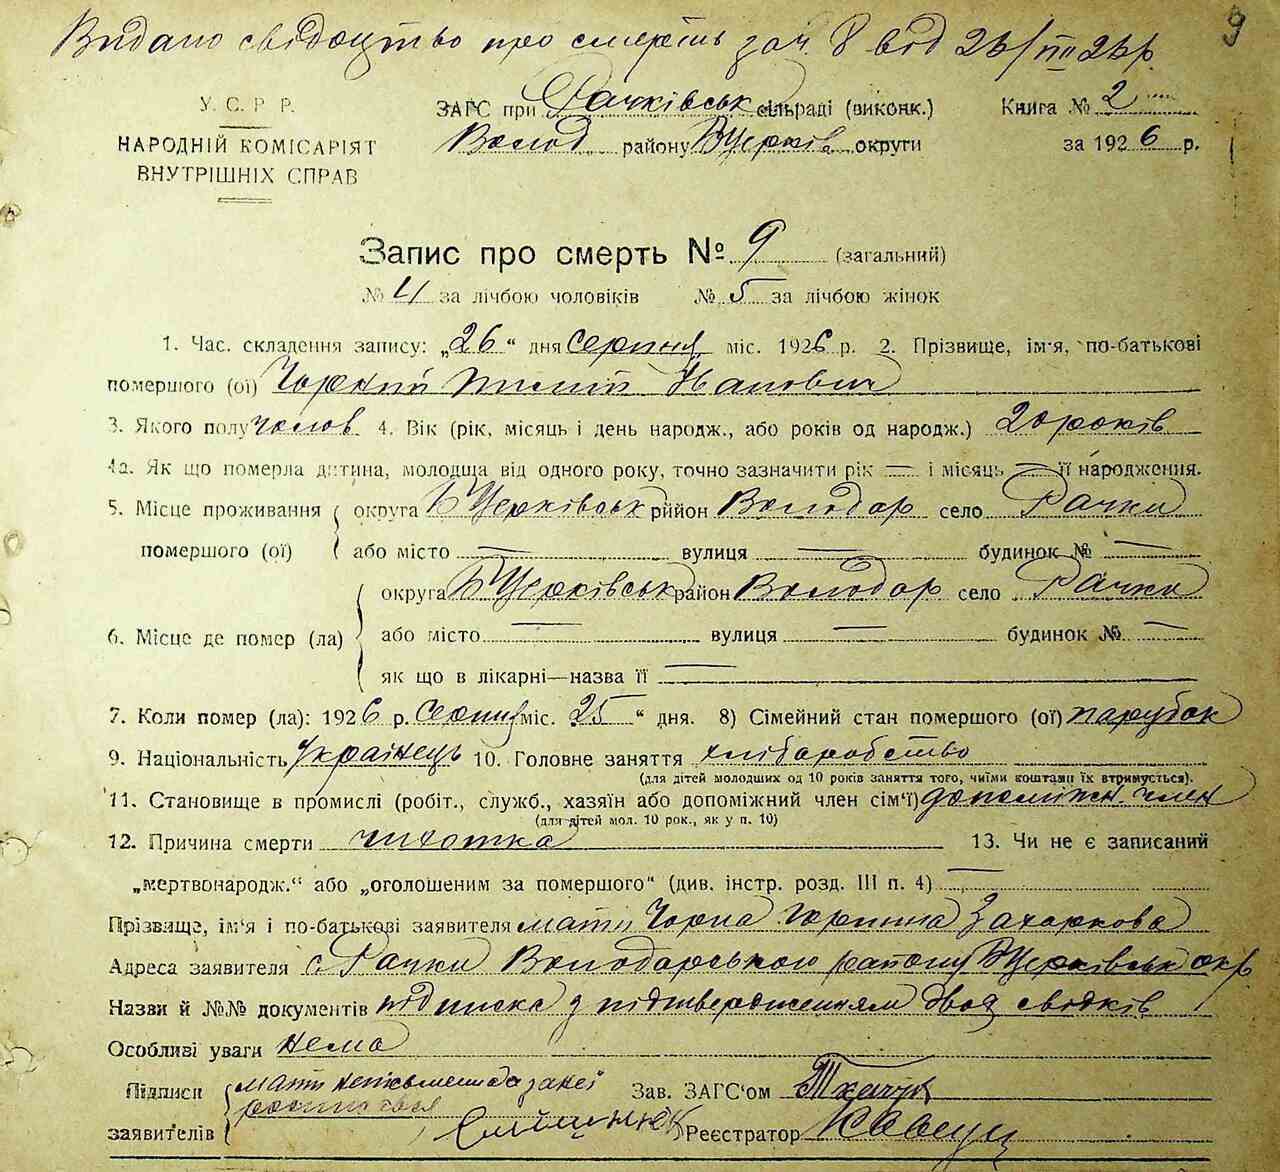 9
Видано свідоцтво про смерть за ч. 8 від 26/VIII 26 р.
У. С. Р. Р.
НАРОДНІЙ КОМІСАРІЯТ
ВНУТРІШНІХ СПРАВ
ЗАГС при Рачківськ сільраді (виконк.)
Волод. району БЦерків. округи
Книга № 2
за 1926 р.
Запис про смерть № 9 (загальний)
№ 4 за лічбою чоловіків № 5 за лічбою жінок
1. Час. складення запису: „26“ дня серпня міс. 1926 р. 2. Прізвище, ім'я, по-батькові
помершого (ої) Чорний Іванович
3. Якого полу чолов. 4. Вік (рік, місяць і день народж., або років од народж.) 20 років
4а. Як що померла дитина, молодща від одного року, точно зазначити рік — і місяць — її народження.
5. Місце проживання помершого (ої)
округа БЦерківськ район Володар село Рачки
або місто — вулиця — будинок № —
6. Місце де помер (ла)
округа БЦерківськ район Володар село Рачки
або місто — вулиця — будинок № —
як що в лікарні—назва її —
7. Коли помер (ла): 1926 р. серпня міс. 25 “ дня. 8) Сімейний стан помершого (ої) парубок
9. Національність Українець 10. Головне заняття хліборобство
(для дітей молодших од 10 років заняття того, чиїми коштами їх втримується).
11. Становище в промислі (робіт., служб., хазяїн або допоміжний член сім'ї) допоміжн. член
(для дітей мол. 10 рок., як у п. 10)
12. Причина смерти чихотка 13. Чи не є записаний
„мертвонародж.“ або „оголошеним за помершого“ (див. інстр. розд. III п. 4) —
Прізвище, ім'я і по-батькові заявителя мати Чорна Горпина Захаркова
Адреса заявителя с. Рачки Володарського району БЦерківськ окр.
Назви й №№ документів підписка з підтвердженням двох свідків
Особливі уваги нема
Підписи заявителів
мати неписьменна за неї
росписався
Зав. ЗАГС'ом Ткачук
Реєстратор